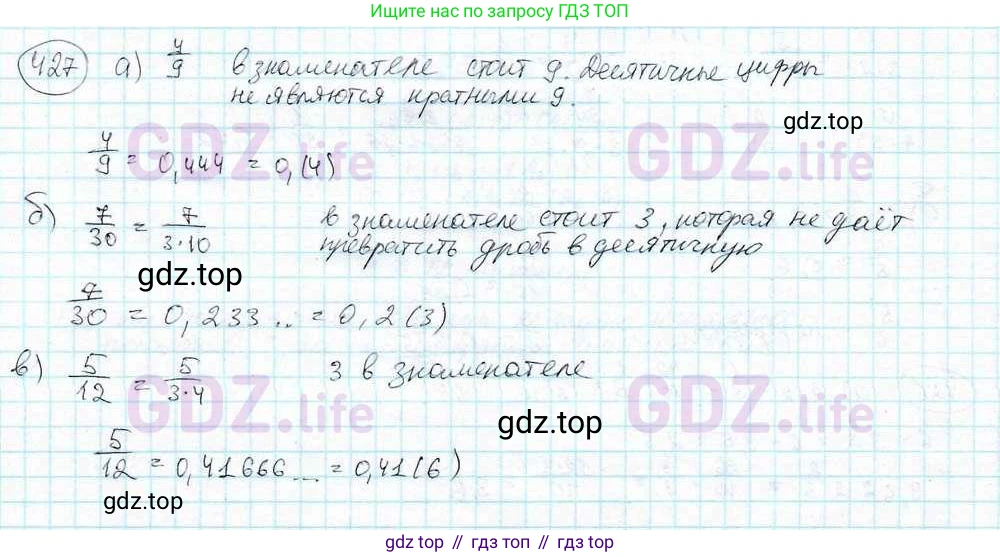 Ищите нас по запросу ГДЗ ТОП
427 а) 4/9 в знаменателе стоит 9. Десятичные цифры
не являются кратными 9.
gdz.top
GDZ.life GDZ.life
4/9 = 0,444 = 0,(4)
б) 7/30 = 7/3·10 в знаменателе стоит 3, которая не даёт
превратить дробь в десятичную
gdz.top
7/30 = 0,233.. = 0,2(3)
в) 5/12 = 5/3·4 3 в знаменателе
GDZ.life GDZ.life
gdz.top
5/12 = 0,41666... = 0,41(6)
gdz.top
gdz.top // гдз.топ // gdz.top